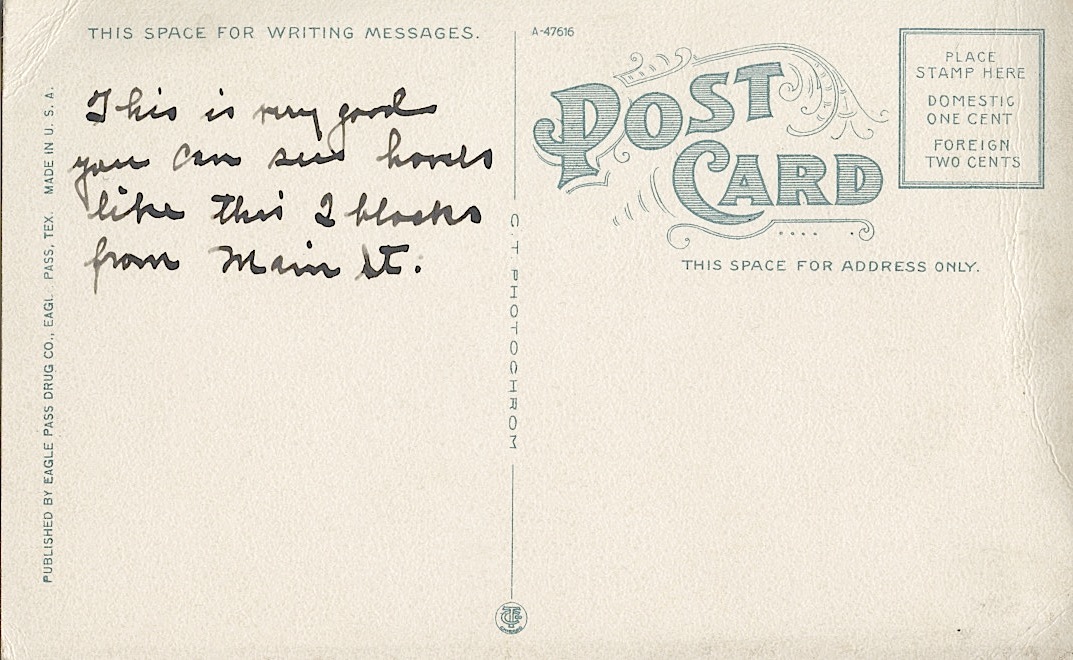 THIS SPACE FOR WRITING MESSAGES.
This is very good
you can see homes
like this 2 blocks
from Main St.
PUBLISHED BY EAGLE PASS DRUG CO., EAGL PASS, TEX. MADE IN U. S. A.
C T PHOTOCHROM
A-47616
POST
CARD
PLACE
STAMP HERE
DOMESTIC
ONE CENT
FOREIGN
TWO CENTS
THIS SPACE FOR ADDRESS ONLY.